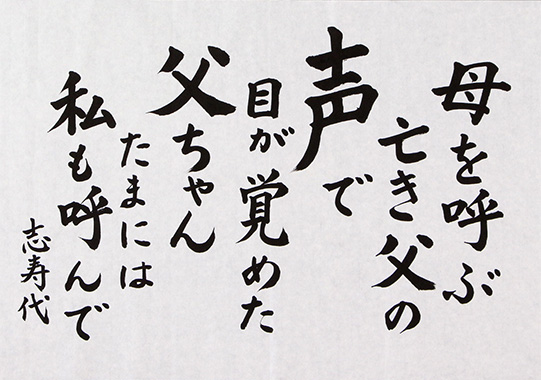 母を呼ぶ
亡き父の
声で
目が覚めた
父ちゃん
たまには
私も呼んで
志寿代